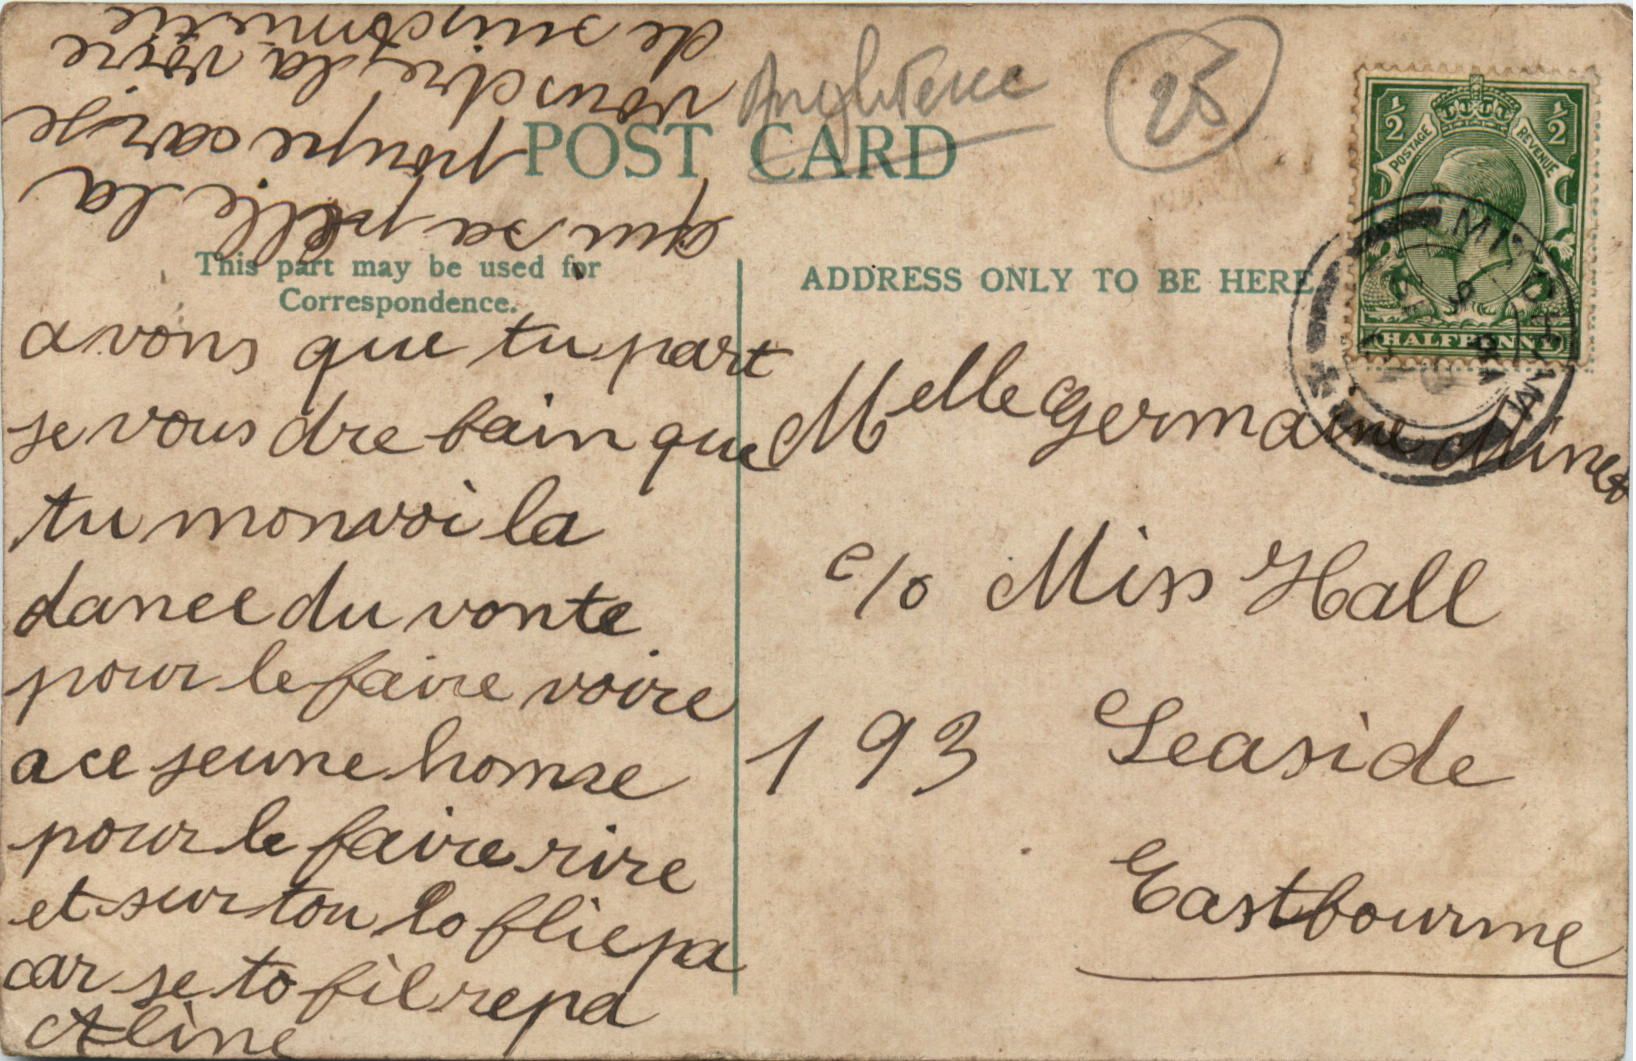 Angleterre
25
POST CARD
1/2 1/2
POSTAGE REVENUE
HALFPENNY
This part may be used for
Correspondence.
ADDRESS ONLY TO BE HERE
avons que tu part
se vous dre bain que
tu monvoi la
dance du vonte
pour le faire voire
a ce jeune homse
pour le faire rire
et sur tou lo fliepa
car se to filrepa
Aline
qui sa pelle la
poupe car se
vous dres la voire
de
Melle Germaine Minet
c/o Miss Hall
193 Seaside
Eastbourne